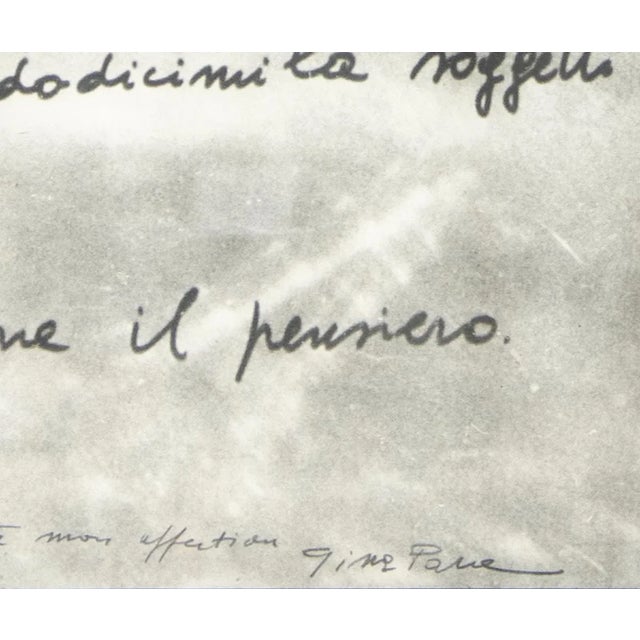 dodicimila soggetti
il pensiero.
mon affection Gina Pane